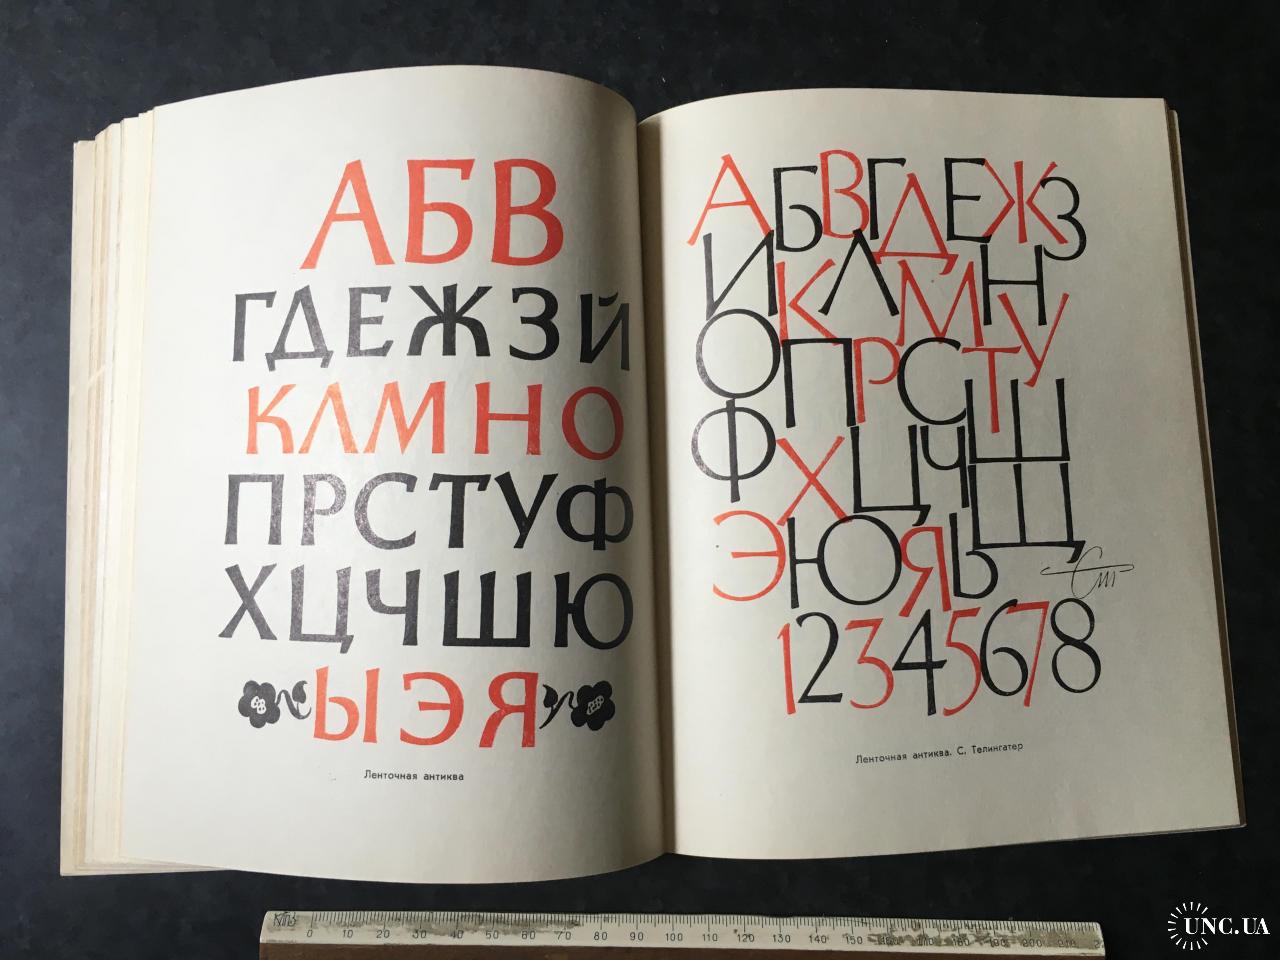 АБВ
ГДЕЖЗЙ
КЛМНО
ПРСТУФ
ХЦЧШЮ
ЫЭЯ
Ленточная антиква
АБВГДЕЖЗ
ИКЛМН
ОПРСТУ
ФХЦЧШЩ
ЭЮЯЬ
12345678
Ленточная антиква. С. Телингатер
0 10 20 30 40 50 60 70 80 90 100 110 120 130 140 150 160 170 180 190 200 210
UNC.UA